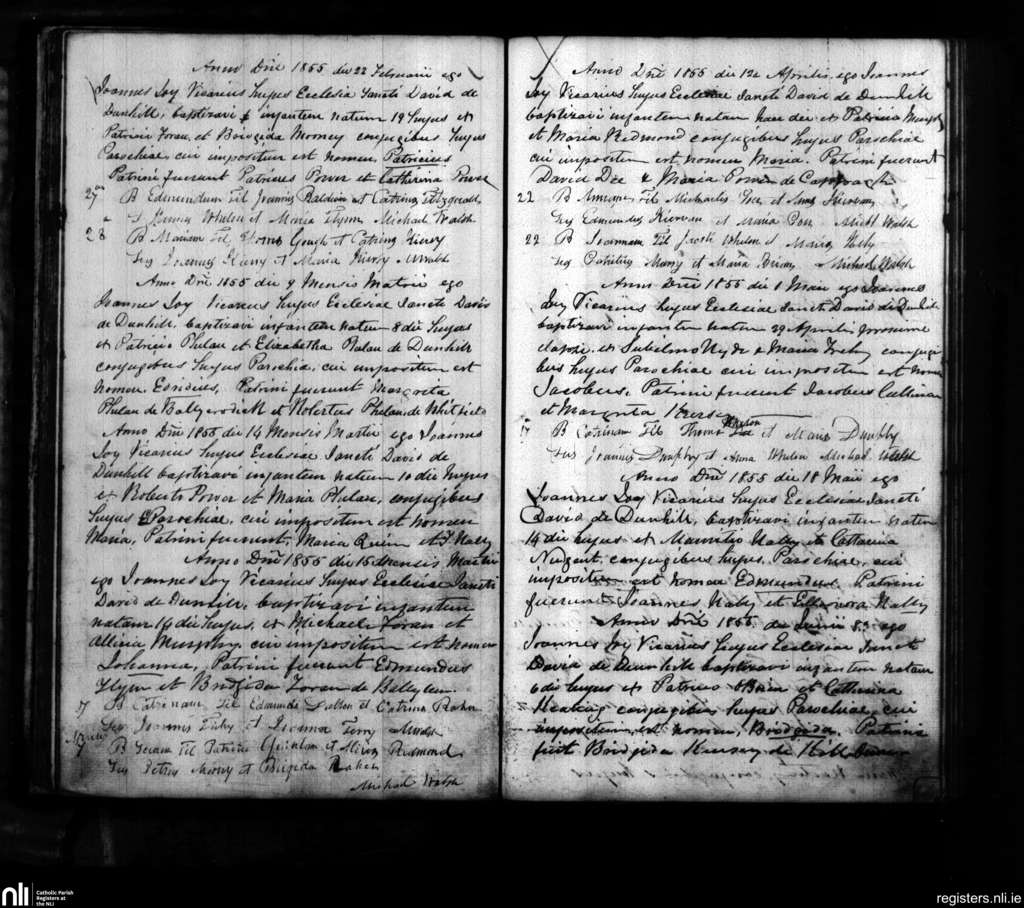 Anno Dni 1855 die 22 Februarii ego
Joannes Joy Vicarius hujus Ecclesia Sancti David de
Dunhill, baptizavi infantem natum 19 hujus ex
Patricio Foran, et Bridgida Mooney conjugibus hujus
Parochiae, cui impositum est nomen, Patricius
Patrini fuerunt Patricius Power et Catharina Power
27 B Edmundum Fil Joannis Baldwin et Catrina Fitzgerald
Whelan et Maria Flynn Michael Walsh
28 B Mariam Fil Thoms Gough et Catrina Kiersy
Sus Joannes Kiersy et Maria Kiersy M Walsh
Anno Dni 1855 die 9 Mensis Martii ego
Joannes Joy Vicarius hujus Ecclesiae Sancti David
de Dunhill, baptizavi infantem natum 8 die hujus
ex Patricio Phelan et Elizabetha Phelan de Dunhill
conjugibus hujus Parochia, cui impositum est
nomen, Patrini fuerunt Margreta
Phelan de et Robertus Phelan de Whitfield
Anno Dni 1855 die 14 Mensis Martii ego Joannes
Joy Vicarius hujus Ecclesiae Sancti David de
Dunhill baptizavi infantem natum 10 die hujus
ex Roberto Power et Maria Phelan, conjugibus
hujus Parochiae, cui impositum est nomen
Maria, Patrini fuerunt, Maria et J Nally
Anno Dni 1855 die 15 Mensis Martii
ego Joannes Joy Vicarius hujus Ecclesiae Sancti
David de Dunhill, baptizavi infantem
natam 14 die hujus, ex Michaele Foran et
Allicia Murphy, cui impositum est nomen
Johanna, Patrini fuerunt Edmundus
Flynn et Bridgida Foran de
17 B Catrinam Fil Edmundi Dalton et Catrina
Sus Joannis et Joanna
B Fil Patricii Quinlan et Redmond
Sus Petrus et Brigida
Michael Walsh
Anno Dni 1855 die 12 Aprilis ego Joannes
Joy Vicarius hujus Ecclesiae Sancti David de Dunhill
baptizavi infantem natam die ex Patricio Murphy
et Maria Redmond conjugibus hujus Parochiae
cui impositum est, nomen Maria. Patrini fuerunt
David Dee & Maria Power de
22 B Fil Michaelis et Kirwan
Sus Edmundus Kirwan et Maria Michl Walsh
22 B Joannem Fil Jacobi Whelan et Maria
Sus et Maria Michael Walsh
Anno Dni 1855 die 1 Maii ego Joannes
Joy Vicarius hujus Ecclesiae Sancti David de Dunhill
baptizavi infantem natum 29 Aprilis proxime
elapsi, ex Gulielmo Hyde & Maria conjugi
bus hujus Parochiae cui impositum est nomen
Jacobus, Patrini fuerunt Jacobus Cullinan
et Margreta
17 B Catrinam Fil Thoma Whelan et Maria Dunphy
Sus Joannis Dunphy et Anna Whelan Michael Walsh
Anno Dni 1855 die 18 Maii ego
Joannes Joy Vicarius hujus Ecclesiae Sancti
David de Dunhill, baptizavi infantem natum
14 die hujus ex Mauritio Nally et Catharina
Nugent, conjugibus hujus Parochiae, cui
impositum est nomen Edmundus. Patrini
fuerunt Joannes Nally et Ellenora Nally
Anno Dni 1855 die Junii 8 ego
Joannes Joy Vicarius hujus Ecclesiae Sancti
David de Dunhill baptizavi infantem natam
6 die hujus ex Patricio O'Brien et Catharina
Keating conjugibus hujus Parochiae, cui
impositum est nomen, Bridgida. Patrini
fuit Bridgida de Kill
nli
Catholic Parish
Registers at
the NLI
registers.nli.ie